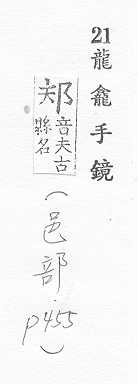 21 龍龕手鏡
邞 音夫古
縣名
(邑部 p455)